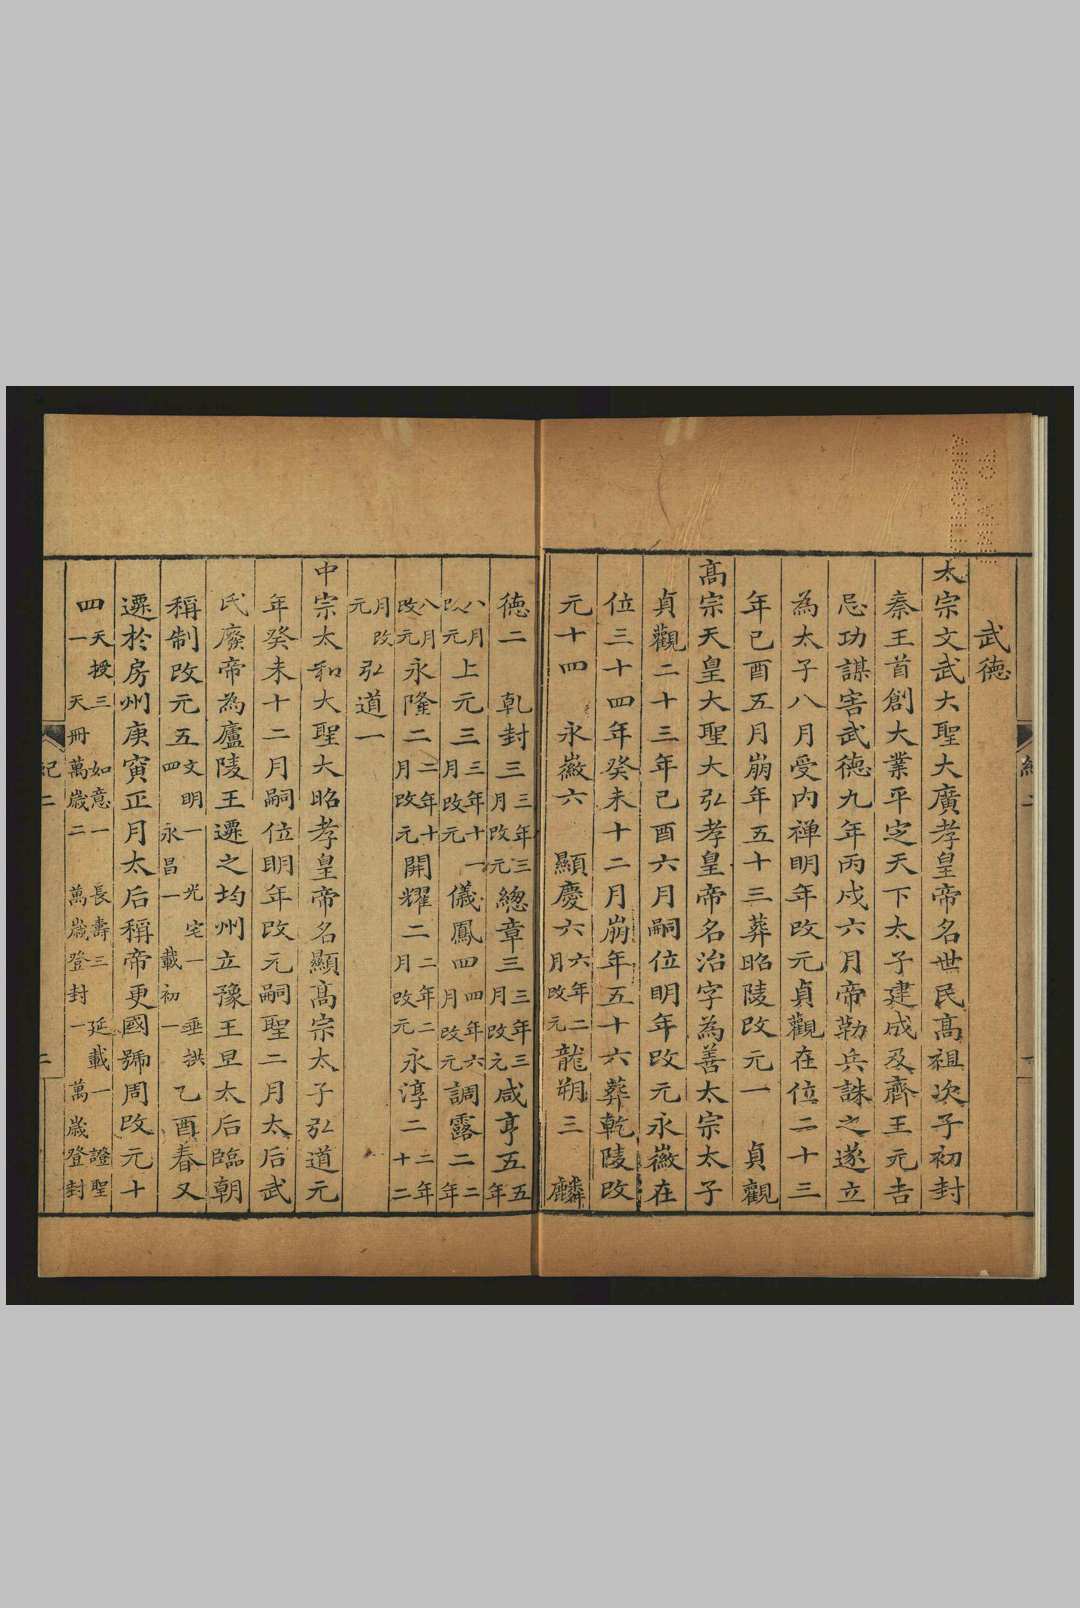 武德
太宗文武大聖大廣孝皇帝名世民髙祖次子初封
秦王首創大業平定天下太子建成及齊王元吉
忌功謀害武德九年丙戍六月帝勒兵誅之遂立
為太子八月受内禅明年改元貞觀在位二十三
年己酉五月崩年五十三葬昭陵改元一 貞觀
髙宗天皇大聖大弘孝皇帝名治字為善太宗太子
貞觀二十三年己酉六月嗣位明年改元永徽在
位三十四年癸未十二月崩年五十六葬乾陵改
元十四 永徽六 顯慶六六年二月改元龍朔三 麟
德二 乹封三三年三月改元總章三三年三月改元咸亨五五年
八月改元上元三三年十一月改元儀鳳四四年六月改元調露二二年
八月改元永隆二二年十月改元開耀二二年二月改元永淳二二年十二
月改元弘道一
中宗太和大聖大昭孝皇帝名顯髙宗太子弘道元
年癸未十二月嗣位明年改元嗣聖二月太后武
氏廢帝為廬陵王遷之均州立豫王旦太后臨朝
稱制改元五文明一 光宅一 垂拱四 永昌一 載初一乙酉春又
遷於房州庚寅正月太后稱帝更國號周改元十
四天授三 如意一 長壽三 延載一 證聖一 天冊萬歲二 萬歲登封一 萬歲登封
紀二
二